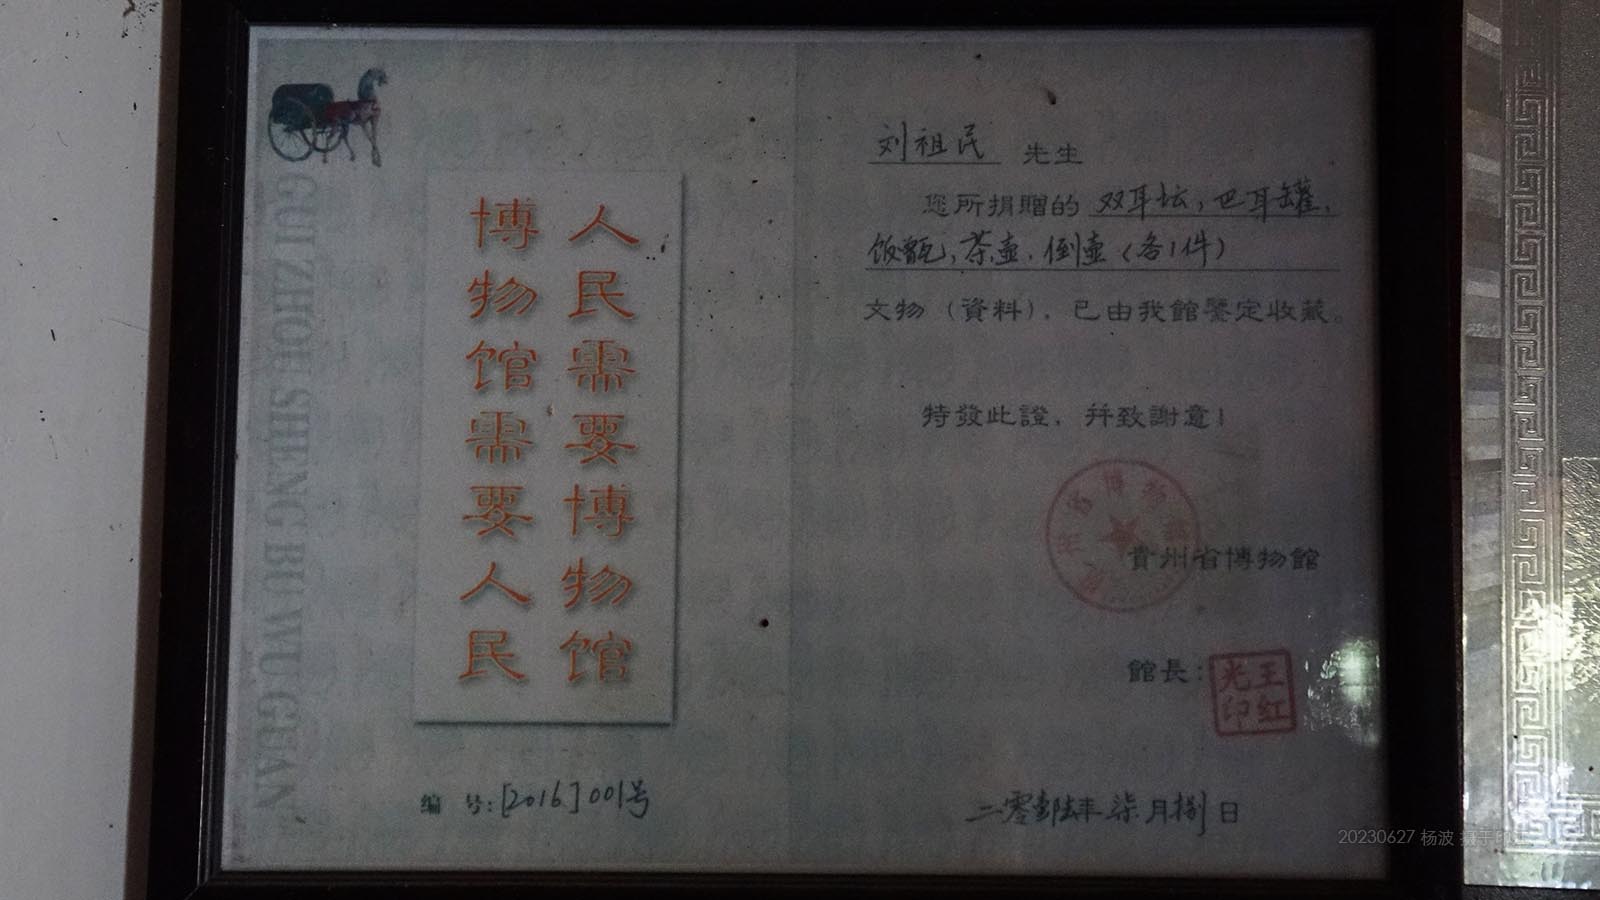 GUI ZHOU SHENG BU WU GUAN
人民需要博物馆
博物馆需要人民
编 号:[2016]001号
刘祖民 先生
您所捐贈的 双耳坛,巴耳罐,
饭甑,茶壶,倒壶(各1件)
文物(資料),已由我館鑒定收藏。
特發此證,并致謝意!
貴州省博物館
館長:
王红光印
二零 年柒月捌日
20230627 杨波 摄于印江